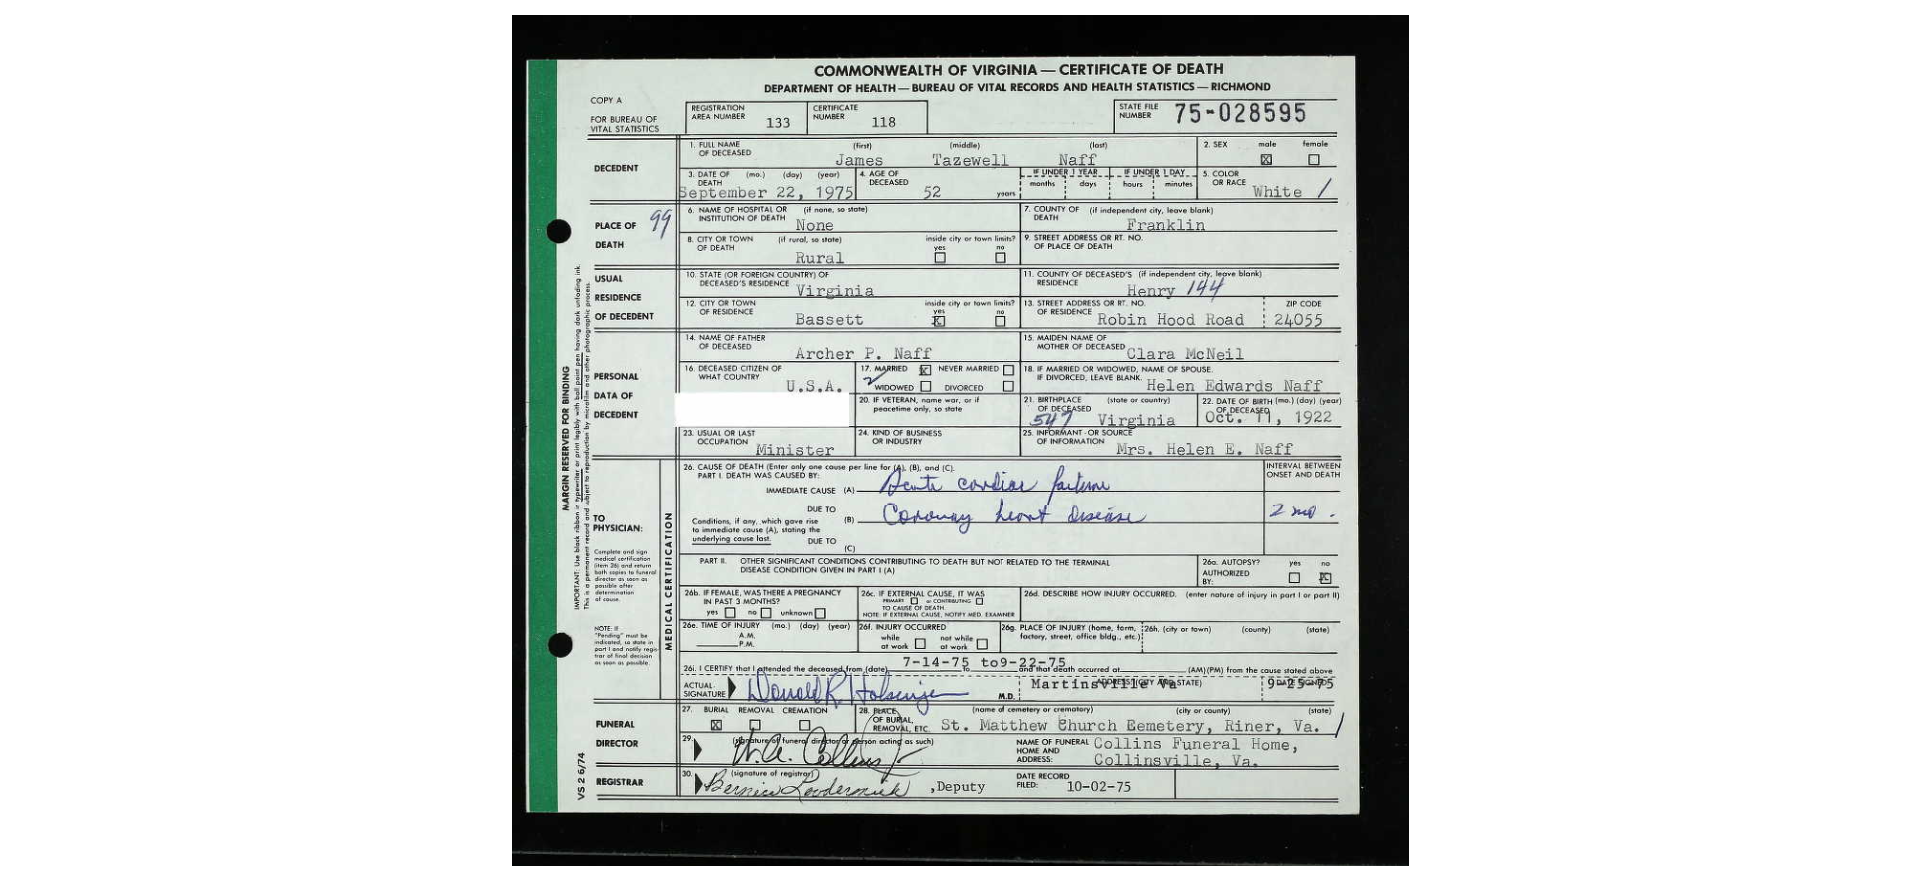 COMMONWEALTH OF VIRGINIA — CERTIFICATE OF DEATH
DEPARTMENT OF HEALTH — BUREAU OF VITAL RECORDS AND HEALTH STATISTICS — RICHMOND
COPY A
FOR BUREAU OF VITAL STATISTICS
REGISTRATION AREA NUMBER 133
CERTIFICATE NUMBER 118
STATE FILE NUMBER 75-028595
DECEDENT
1. FULL NAME OF DECEASED (first) (middle) (last)
James Tazewell Naff
2. SEX male ☒ female ☐
3. DATE OF DEATH (mo.) (day) (year)
September 22, 1975
4. AGE OF DECEASED 52 years
IF UNDER 1 YEAR months days
IF UNDER 1 DAY hours minutes
5. COLOR OR RACE White /
PLACE OF DEATH
99
6. NAME OF HOSPITAL OR INSTITUTION OF DEATH (if none, so state) None
7. COUNTY OF DEATH (if independent city, leave blank) Franklin
8. CITY OR TOWN OF DEATH (if rural, so state) Rural
inside city or town limits? yes ☐ no ☐
9. STREET ADDRESS OR RT. NO. OF PLACE OF DEATH
USUAL RESIDENCE OF DECEDENT
10. STATE (OR FOREIGN COUNTRY) OF DECEASED'S RESIDENCE Virginia
11. COUNTY OF DECEASED'S RESIDENCE (if independent city, leave blank) Henry 144
12. CITY OR TOWN OF RESIDENCE Bassett
inside city or town limits? yes ☒ no ☐
13. STREET ADDRESS OR RT. NO. OF RESIDENCE Robin Hood Road
ZIP CODE 24055
PERSONAL DATA OF DECEDENT
14. NAME OF FATHER OF DECEASED Archer P. Naff
15. MAIDEN NAME OF MOTHER OF DECEASED Clara McNeil
16. DECEASED CITIZEN OF WHAT COUNTRY U.S.A.
17. MARRIED ☒ NEVER MARRIED ☐
WIDOWED ☐ DIVORCED ☐
18. IF MARRIED OR WIDOWED, NAME OF SPOUSE. IF DIVORCED, LEAVE BLANK. Helen Edwards Naff
20. IF VETERAN, name war, or if peacetime only, so state
21. BIRTHPLACE OF DECEASED (state or country) 547 Virginia
22. DATE OF BIRTH OF DECEASED (mo.) (day) (year) Oct. 11, 1922
23. USUAL OR LAST OCCUPATION Minister
24. KIND OF BUSINESS OR INDUSTRY
25. INFORMANT - OR SOURCE OF INFORMATION Mrs. Helen E. Naff
MARGIN RESERVED FOR BINDING
IMPORTANT: Use black ribbon in typewriter or print legibly with ball point pen having dark unfading ink.
This is a permanent record and subject to reproduction by microfilm and other photographic process.
TO PHYSICIAN:
Complete and sign medical certification (item 26) and return both copies to funeral director as soon as possible after determination of cause.
NOTE: If "Pending" must be indicated, so state in part I and notify registrar of final decision as soon as possible.
MEDICAL CERTIFICATION
26. CAUSE OF DEATH (Enter only one cause per line for (A), (B), and (C).
PART I. DEATH WAS CAUSED BY:
INTERVAL BETWEEN ONSET AND DEATH
IMMEDIATE CAUSE (A) Acute cardiac failure
DUE TO
(B) Coronary heart disease 2 mo.
Conditions, if any, which gave rise to immediate cause (A), stating the underlying cause last.
DUE TO
(C)
PART II. OTHER SIGNIFICANT CONDITIONS CONTRIBUTING TO DEATH BUT NOT RELATED TO THE TERMINAL DISEASE CONDITION GIVEN IN PART I (A)
26a. AUTOPSY? AUTHORIZED BY: yes ☐ no ☒
26b. IF FEMALE, WAS THERE A PREGNANCY IN PAST 3 MONTHS?
yes ☐ no ☐ unknown ☐
26c. IF EXTERNAL CAUSE, IT WAS
PRIMARY ☐ or CONTRIBUTING ☐
TO CAUSE OF DEATH
NOTE: IF EXTERNAL CAUSE, NOTIFY MED. EXAMINER
26d. DESCRIBE HOW INJURY OCCURRED. (enter nature of injury in part I or part II)
26e. TIME OF INJURY (mo.) (day) (year)
A.M.
P.M.
26f. INJURY OCCURRED
while at work ☐ not while at work ☐
26g. PLACE OF INJURY (home, farm, factory, street, office bldg., etc.)
26h. (city or town) (county) (state)
26i. I CERTIFY that I attended the deceased from (date) 7-14-75 to 9-22-75 and that death occurred at (AM)(PM) from the cause stated above
ACTUAL SIGNATURE Donald R. Holsinger M.D.
Martinsville Va ADDRESS (CITY AND STATE)
9-25-75 DATE SIGNED
FUNERAL DIRECTOR
27. BURIAL ☒ REMOVAL ☐ CREMATION ☐
28. PLACE OF BURIAL, REMOVAL, ETC. (name of cemetery or crematory) (city or county) (state)
St. Matthew Church Eemetery, Riner, Va. /
29. (signature of funeral director or person acting as such)
W.A. Collins Jr
NAME OF FUNERAL HOME AND ADDRESS: Collins Funeral Home,
Collinsville, Va.
REGISTRAR
30. (signature of registrar)
Bernice Loudermilk, Deputy
DATE RECORD FILED: 10-02-75
VS 2 6/74